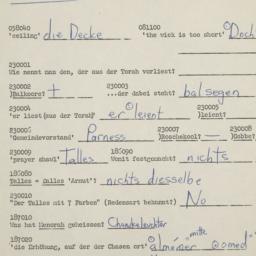 058040 081100
'ceiling' die Decke 'the wick is too short' Doch
230001
Wie nennt man den, der aus der Torah vorliest?
230002 230003
Balkoore? + ...der dabei steht? balsegen
230004 230005
'er liest (aus der Torah)' er leient Leient?
230006 230007 230008
'Gemeindevorstand' Parness Roschekool? — Gabbe?
230009 186090
'prayer shawl' Talles Womit festgemacht? nichts
186080
Talles = dalles 'Armut'? nichts diesselbe
230010
"Der Talles mit 7 Farben" (Redensart bekannt?) No
187010
Was hat Menorah geheissen? Chanukeleichter
187020 mitte
'die Erhöhung, auf der der Chasen ort' almeimer omed